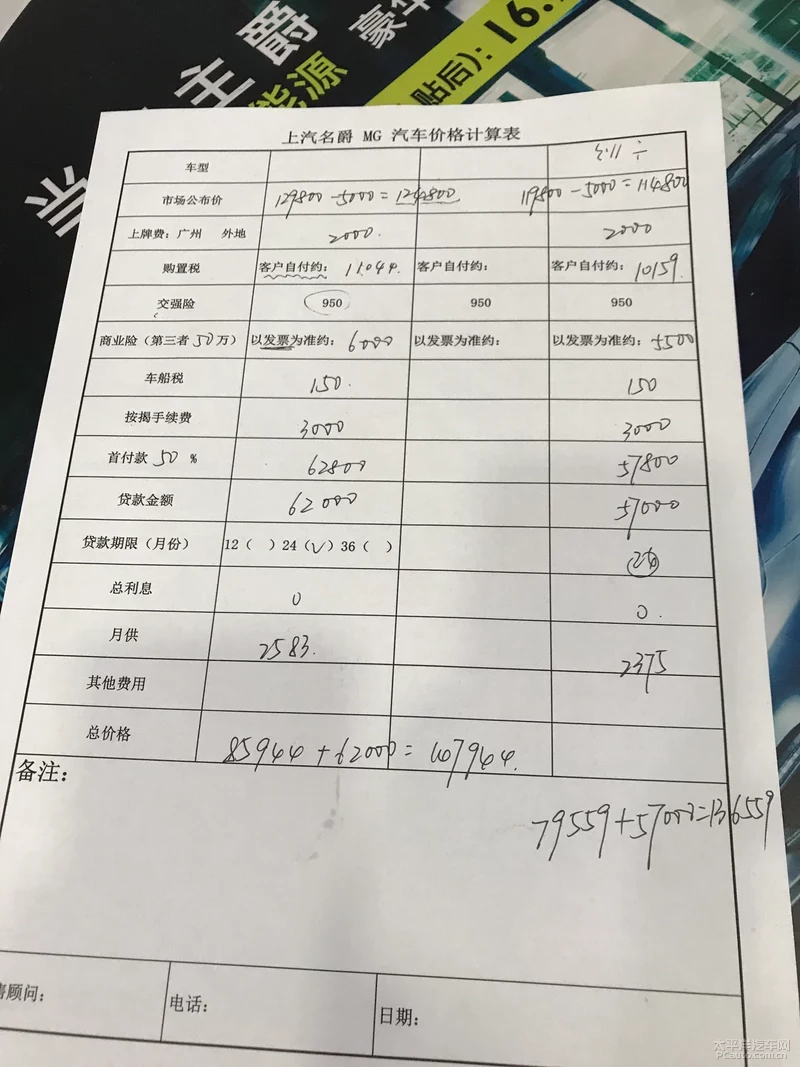 当
主爵
能源
豪华
贴后): 16.
上汽名爵 MG 汽车价格计算表
车型
市场公布价 129800-5000=124800 119800-5000=114800
上牌费: 广州 外地 2000. 2000
购置税 客户自付约: 11044. 客户自付约: 客户自付约: 10159.
交强险 950 950 950
商业险 (第三者 50 万) 以发票为准约: 6000 以发票为准约: 以发票为准约: 5500
车船税 150. 150
按揭手续费 3000 3000
首付款 50 % 62800 57800
贷款金额 62000 57000
贷款期限 (月份) 12 ( ) 24 (√) 36 ( )
总利息 0 0.
月供 2583. 2375
其他费用
总价格 85944+62000=147944.
备注:
79559+57000=136559
售顾问:
电话:
日期:
太平洋汽车网
PCauto.com.cn